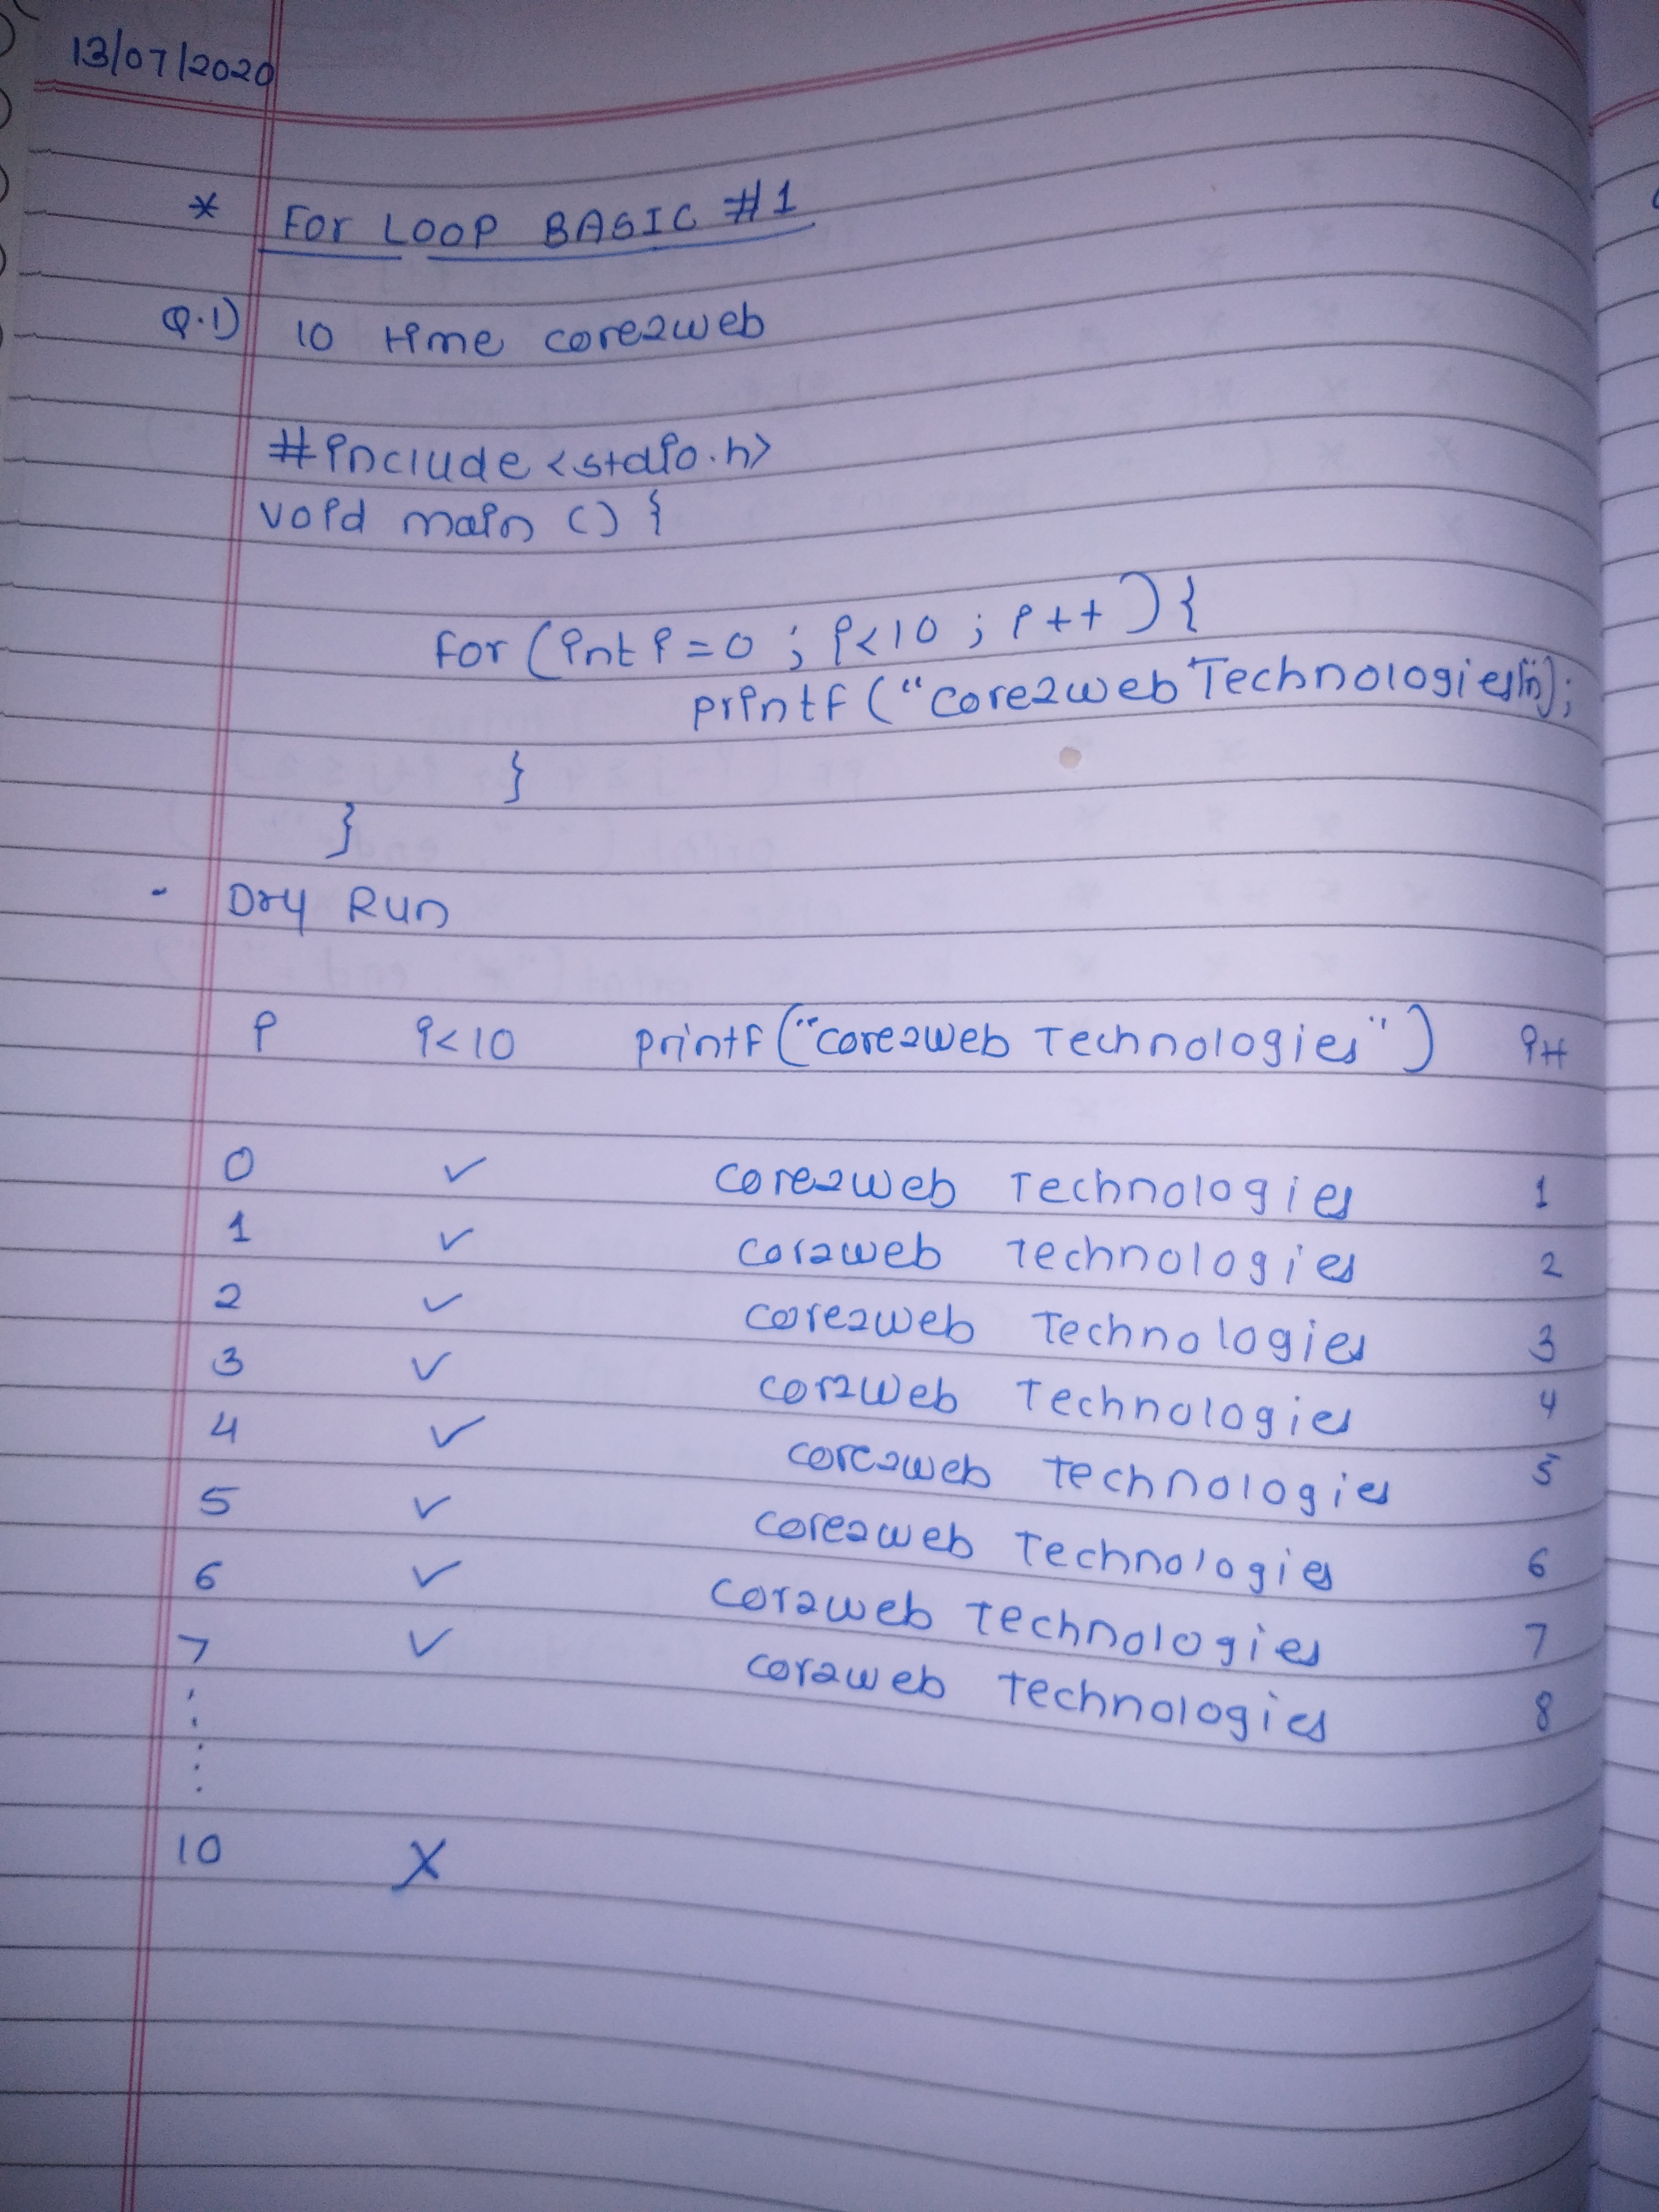 13/07/2020
* For LOOP BASIC #1
Q.1) 10 time core2web
#include <stdio.h>
void main () {
for (int i = 0 ; i<10 ; i++) {
printf ("core2web Technologies\n");
}
}
- Dry Run
i i<10 printf ("core2web Technologies") i++
0 ✓ core2web Technologies 1
1 ✓ cor2web Technologies 2
2 ✓ core2web Technologies 3
3 ✓ cor2web Technologies 4
4 ✓ core2web Technologies 5
5 ✓ core2web Technologies 6
6 ✓ cor2web Technologies 7
7 ✓ cor2web Technologies 8
:
:
10 X